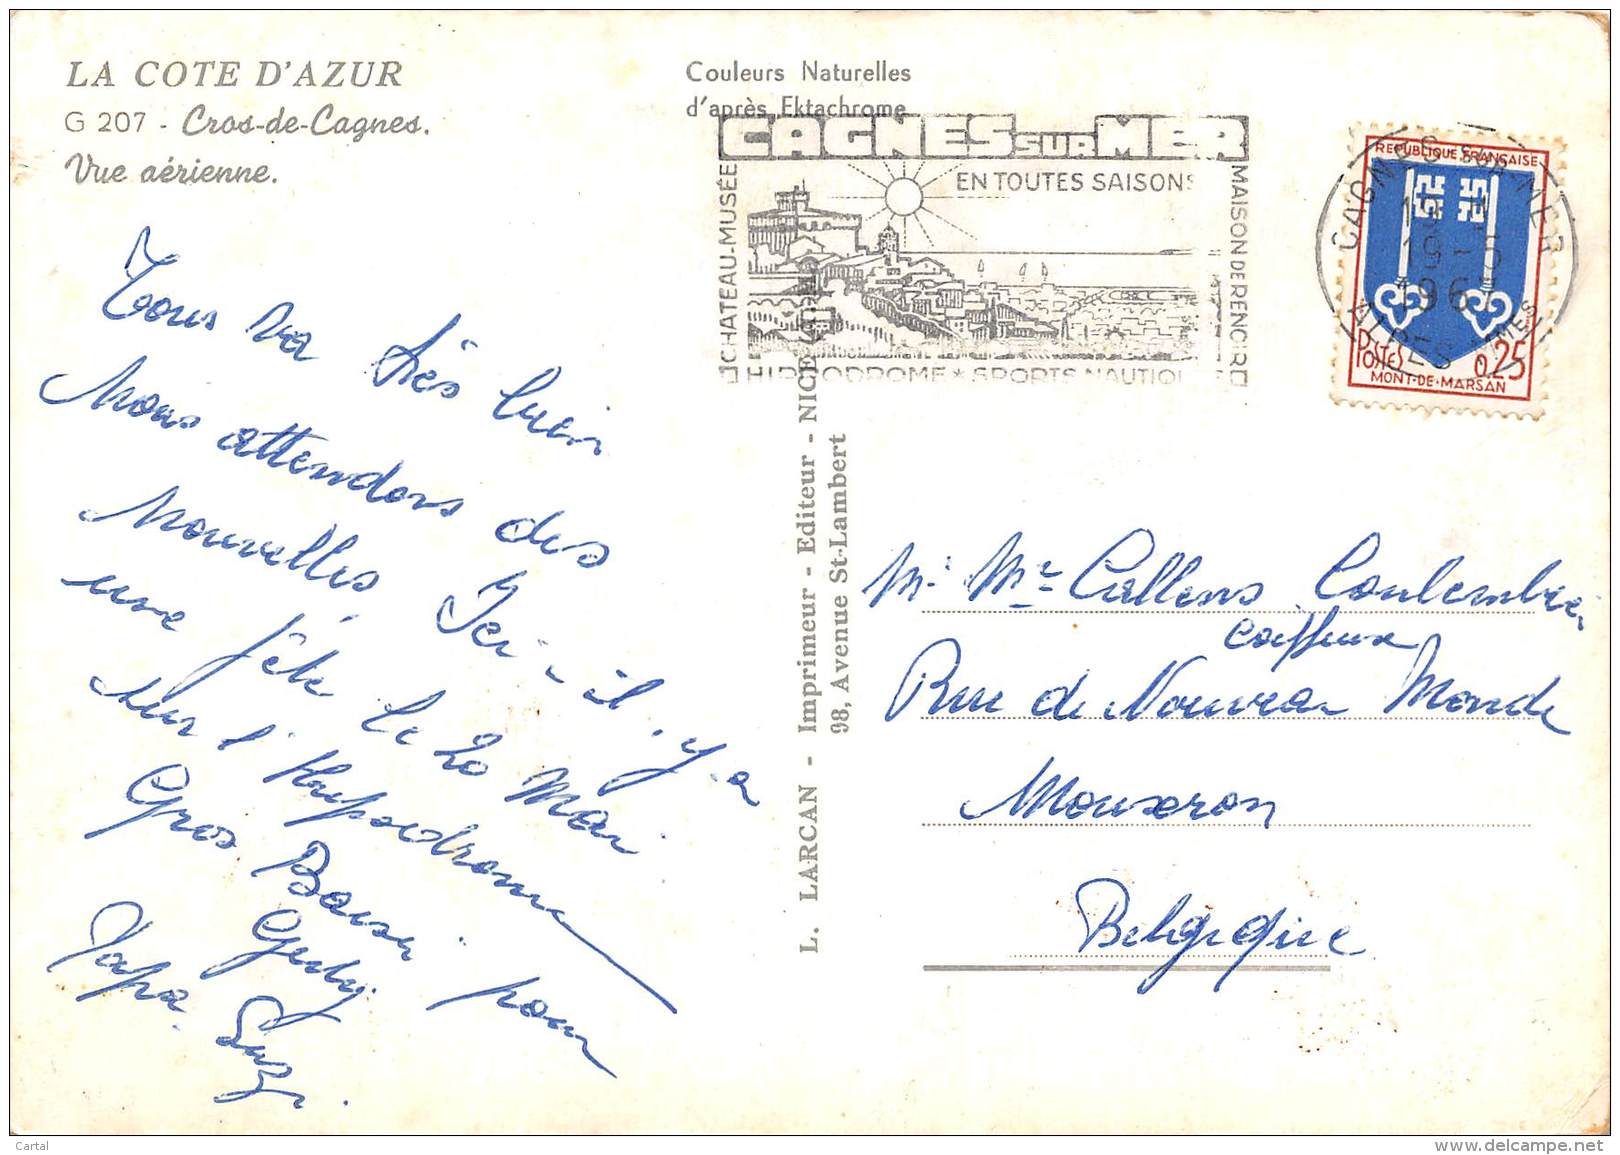 LA COTE D'AZUR
G 207 - Cros-de-Cagnes.
Vue aérienne.
Couleurs Naturelles
d'après Ektachrome
CAGNES SUR MER
EN TOUTES SAISONS
CHATEAU-MUSÉE
MAISON DE RENOIR
HIPPODROME * SPORTS NAUTIQU
CAGNES SUR MER
196
ALPES MMES
REPUBLIQUE FRANÇAISE
POSTES
0,25
MONT-DE-MARSAN
L. LARCAN - Imprimeur - Editeur - NICE
98, Avenue St-Lambert
Tous va très bien
Nous attendons des
Nouvelles, Ici il y a
une fête le 20 Mai
sur l'Hyppodrome
Gros Baiser pour
Guby
Papa. Suzy.
Mr Me Callens Coulembier
Coiffeur
Rue du Nouveau Monde
Mouscron
Belgique
Cartal
delcampe.net